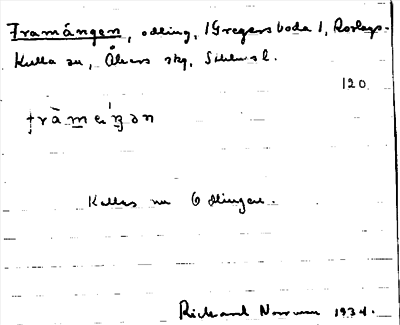 Framängen, odling, 1 Gregersboda 1, Roslags-
Kulla sn, Åkers skg, Sthlms l.
120.
Kallas nu Odlingen.
Rickard Norrum 1934.